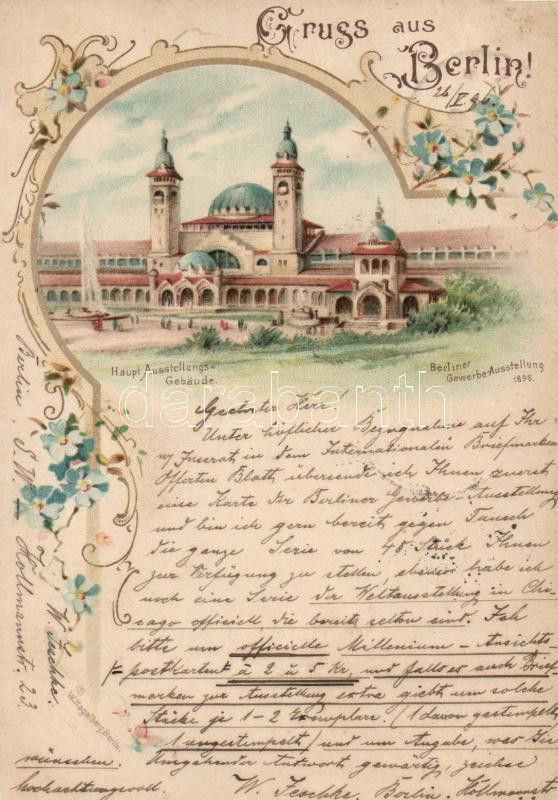 Gruss aus
Berlin!
26/V 96.
Haupt Ausstellungs-
Gebäude
Berliner
Gewerbe-Ausstellung
1896.
darabanth
Geehrter Herr!
Unter höflicher Bezugnahme auf Ihr
w/ Inserat in dem Internationalen Briefmarken
Offerten Blatt, übersende ich Ihnen zuerst
eine Karte der Berliner Gewerbe-Ausstellung
und bin ich gern bereit gegen Tausch
die ganze Serie von 48 Stück Ihnen
zur Verfügung zu stellen, ebenso habe ich
noch eine Serie der Weltausstellung in Chi-
cago officiell die bereits selten sind. Ich
bitte um officielle Millenium - Ansichts-
postkarten à 2 u 5 Kr, und falls es auch Brief
marken zur Ausstellung extra giebt um solche
Stücke je 1-2 Exemplare. (1 davon gestempelt
1 ungestempelt) und um Angabe, was Sie
wünschen. Umgehender Antwort gewärtig, zeichne
hochachtungsvoll. W. Jeschke, Berlin, Hollmannstr
Berlin. S.W. Hollmannstr. 23
W. Jeschke.
W. Hagelberg, Berlin.